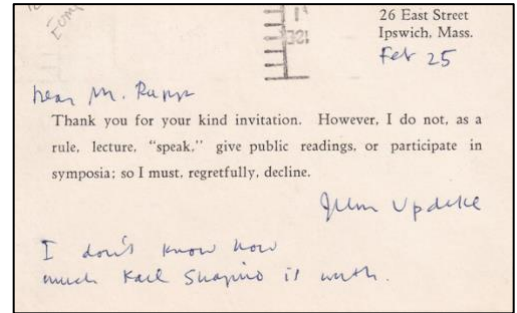 26 East Street
Ipswich, Mass.
Feb 25
Dear Mr. Rupp
Thank you for your kind invitation. However, I do not, as a
rule, lecture, "speak," give public readings, or participate in
symposia; so I must, regretfully, decline.
John Updike
I don't know how
much Karl Shapiro is worth.